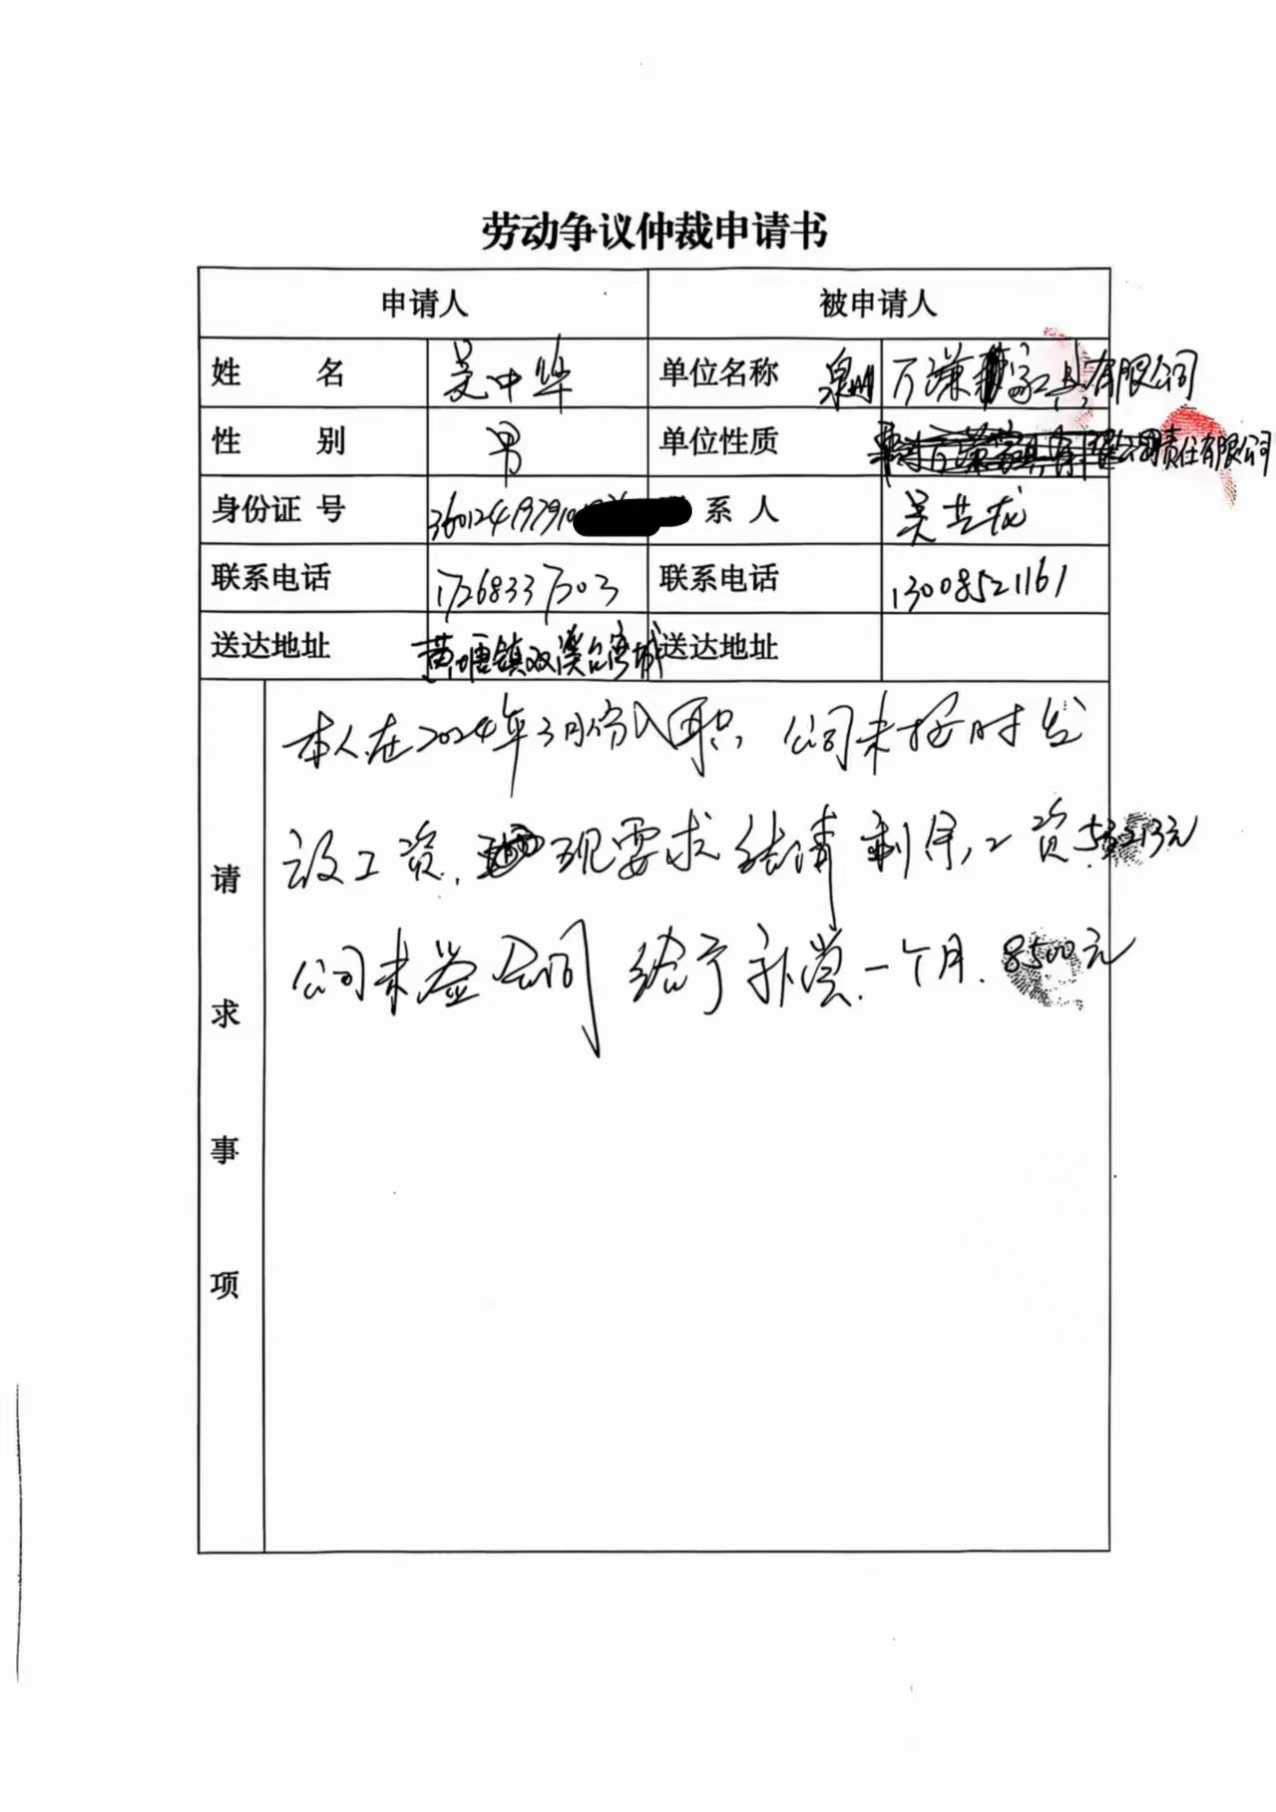 劳动争议仲裁申请书
申请人 被申请人
姓 名 吴中华 单位名称 泉州万谦家具有限公司
性 别 男 单位性质 责任有限公司
身份证 号 360124197910 系 人 吴艺龙
联系电话 17268337303 联系电话 13008521161
送达地址 黄塘镇双溪台湾城 送达地址
请求事项
本人在2024年3月份入职，公司未按时发
设工资，现要求结清剩余工资 元
公司未签合同 给予补偿一个月.8500元